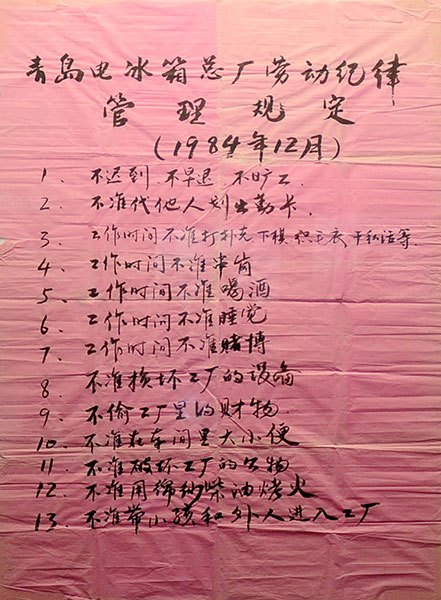 青岛电冰箱总厂劳动纪律
管理规定
(1984年12月)
1. 不迟到 不早退 不旷工.
2. 不准代他人划出勤卡.
3. 工作时间不准打扑克下棋 织毛衣 干私活等.
4. 工作时间不准串岗
5. 工作时间不准喝酒
6. 工作时间不准睡觉
7. 工作时间不准赌博
8. 不准损坏工厂的设备
9. 不偷工厂里的财物.
10. 不准在车间里大小便
11. 不准破坏工厂的公物
12. 不准用棉纱柴油烤火
13. 不准带小孩和外人进入工厂